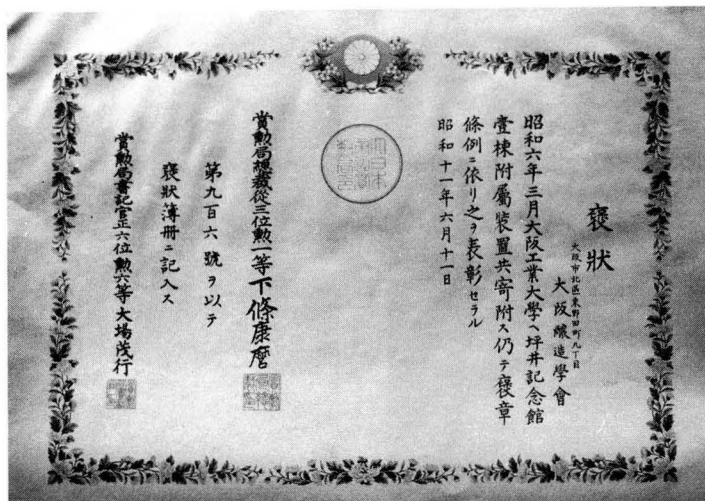 褒狀
大阪市北區東野田町九丁目
大阪釀造學會
昭和六年三月大阪工業大學ヘ坪井記念館
壹棟附屬裝置共寄附ス仍テ褒章
條例ニ依リ之ヲ表彰セラル
昭和十一年六月十一日
賞勲局總裁從三位勲一等下條康麿
第九百六號ヲ以テ
褒狀簿册ニ記入ス
賞勲局書記官正六位勲六等大場茂行